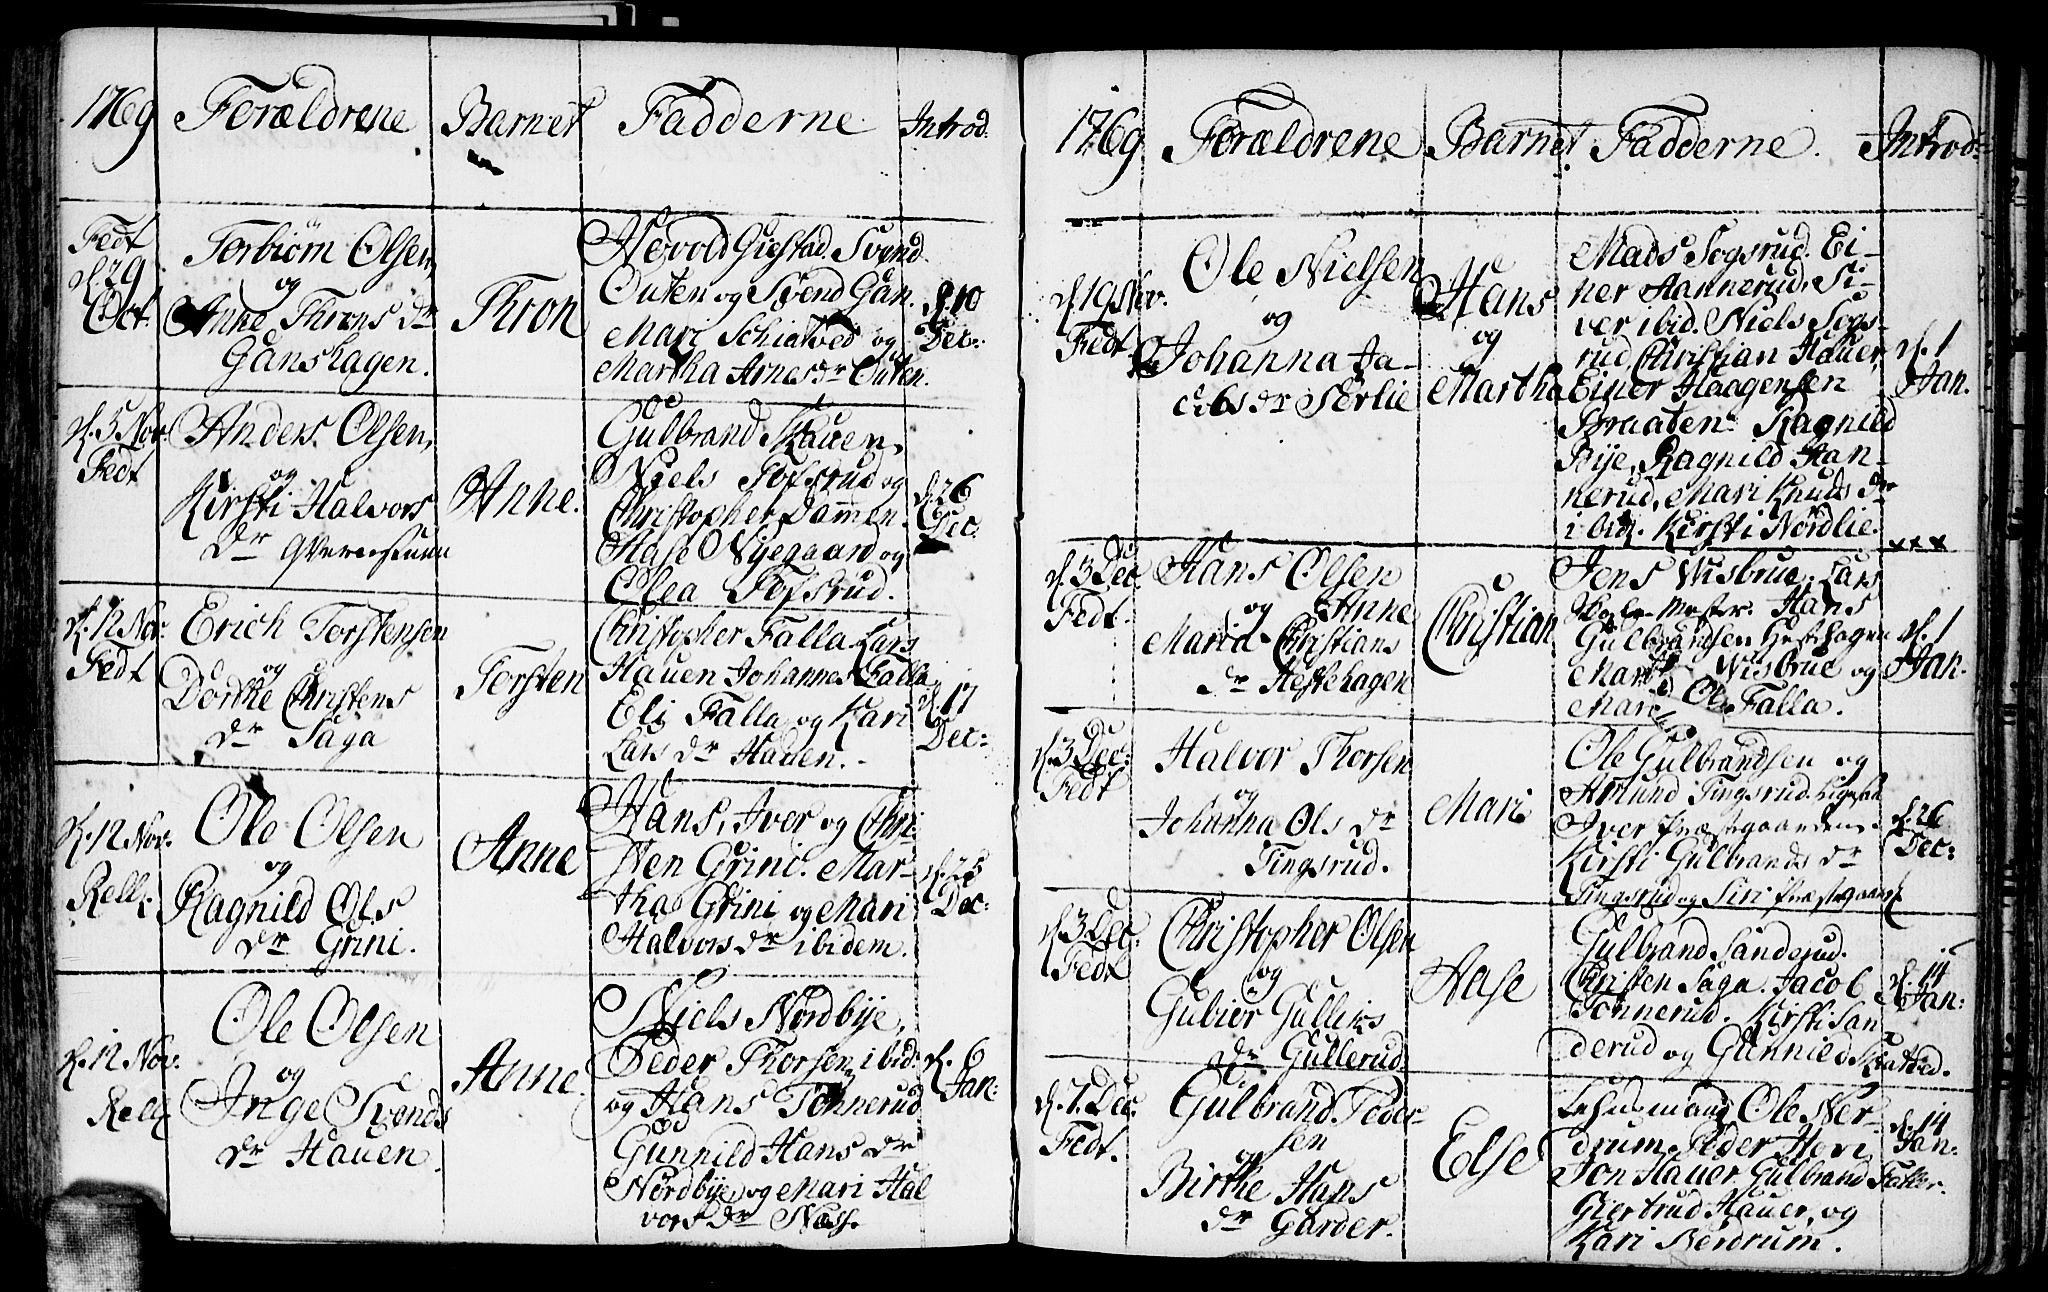 1769 Forældrene Barnet Fadderne Introd.
Fedt
d. 29
Oct.
Torbiörn Olsen,
og
Anne Throns dr
Ganshagen.
Thron
Nevold Giestad. Svend
Outen og Svend Gan.
Mari Schiatved og
Martha Arnes dr Outen.
d. 10
Dec:
d. 5 Nov.
Fedt
Anders Olsen,
og
Kirsti Halvors
dr
Anne.
Gulbrand Hauen,
Niels Fofsrud og
Christopher Dammen.
Aase Nyegaard og
Olea Fofsrud.
d. 26
Dec:
d. 12 Nov:
Fedt
Erich Torstensen
og
Dorthe Christens
dr Saga
Torsten
Christopher Falla. Lars
Hauen Johannes Falla
Eli Falla og Kari
Lars dr Hauen.
d. 17
Dec:
d. 12 Nov:
Rell:
Ole Olsen
og
Ragnild Ols
dr Grini.
Anne
Hans, Iver og Chri-
sten Grini. Mar-
tha Grini og Mari
Halvors dr ibidem.
d. 25
Dec:
d. 12 Nov:
Rell:
Ole Olsen
og
Inge Svends
dr Hauen.
Anne.
Niels Nordbye,
Peder Thorsen ibid:
og Hans Tonnerud
Gunnild Hans dr
Nordbye, og Mari Hal
vors dr Næss.
d. 6
Jan:
1769 Forældrene Barnet Fadderne. Introd:
d. 19 Nov.
Fedt.
Ole Nielsen
og
Johanna Ja-
cobs dr Sörlie
Hans
og
Martha
Mads Sogsrud. Ei-
ner Hannerud, Si-
ver ibid. Niels Sogs-
rud, Christian Hauer,
Einer Haagensen
Braaten. Ragnild
Bye, Ragnild Han-
nerud, Mari Knuds dr
ibid. Kirsti Nordlie.
d. 1
Jan.
x x x
d. 3 Dec.
Fedt.
Hans Olsen
og Anne
Maria Christians
dr Hestehagen
Christian
Jens Wisbrue. Lars
Hans
Gulbrandsen Hestehagen
Wisbrue og
Mari Falla.
d. 1
Jan.
d. 3 Dec:
Fedt
Halvor Thorsen
og
Johanna Ols dr
Tingsrud.
Mari
Ole Gulbrandsen og
Amund Tingsrud.
Iver Præstegaarden.
Kirsti Gulbrands dr
Tingsrud og Siri Præstegaard
d. 26
Dec:
d. 3 Dec:
Fedt
Christopher Olsen
og
Gubiör Gulliks
dr Gullerud.
Aase
Gulbrand Sanderud.
Christen Saga. Jacob
Tonnerud. Kirsti San-
derud og Gunnild Skiatved.
d. 14
Jan:
d. 7. Dec.
Fedt.
Gulbrand Peder-
sen
og
Birthe Hans
dr Garder.
Else
Lehnsmand Ole Ner-
drum. Peder Hovi
Jon Hauer Gulbrand Falker.
Giertrud Hauer, og
Kari Nerdrum.
d. 14
Jan-